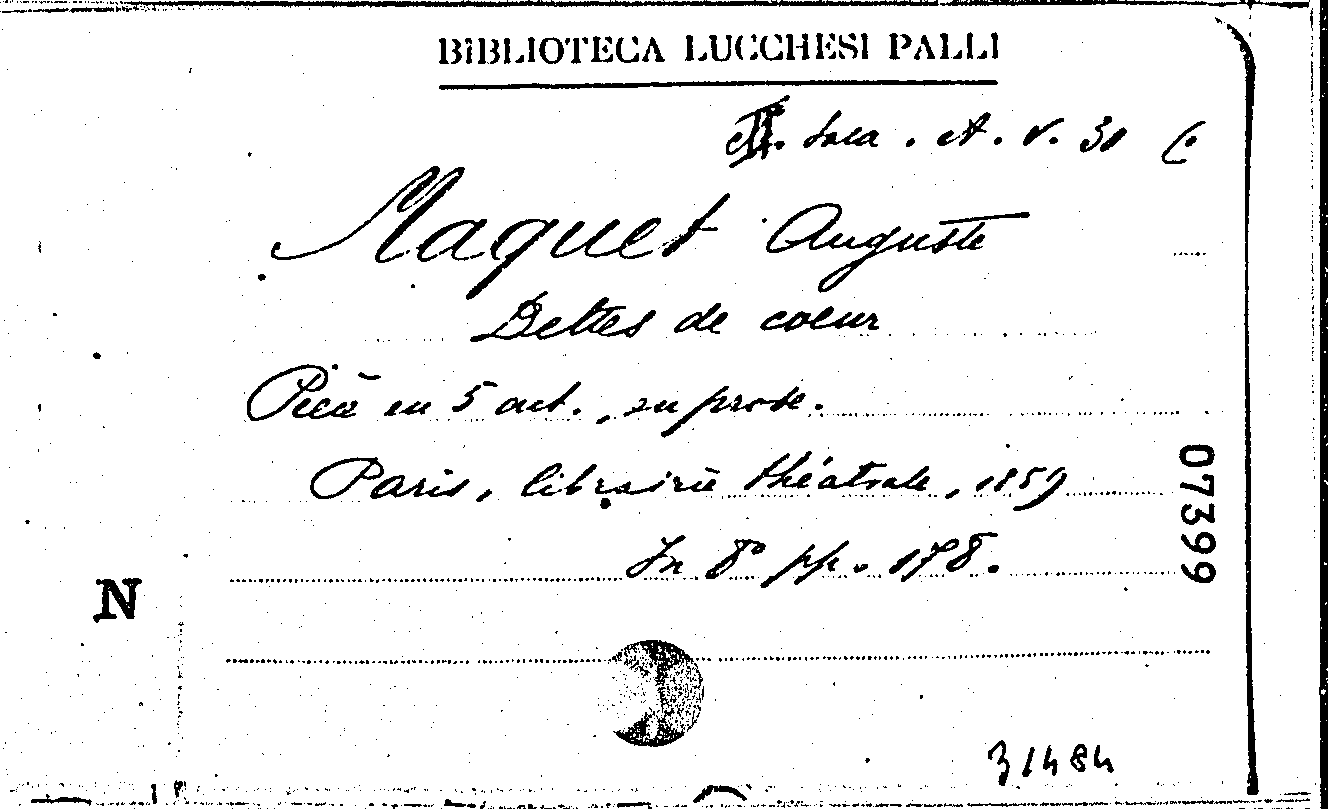 BIBLIOTECA LUCCHESI PALLI
Sala . A . V. 31 (.
Maquet Auguste
Dettes de coeur
Pièce en 5 act., en prose.
Paris, librairie théatrale, 1859
In 8° pp. 178.
07399
N
31484